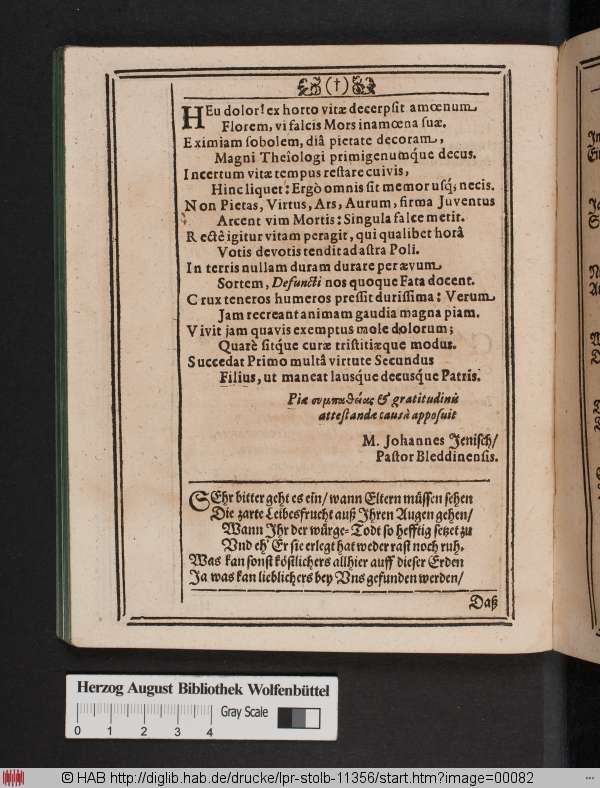 (†)
HEu dolor! ex horto vitæ decerpsit amœnum
Florem, vi falcis Mors inamœna suæ.
Eximiam sobolem, diâ pietate decoram,
Magni Theiologi primigenumque decus.
Incertum vitæ tempus restare cuivis,
Hinc liquet: Ergò omnis sit memor usq; necis.
Non Pietas, Virtus, Ars, Aurum, firma Juventus
Arcent vim Mortis: Singula falce metit.
Rectè igitur vitam peragit, qui qualibet horâ
Votis devotis tendit ad astra Poli.
In terris nullam duram durare per ævum
Sortem, Defuncti nos quoque Fata docent.
Crux teneros humeros pressit durissima: Verum
Jam recreant animam gaudia magna piam.
Vivit jam quavis exemptus mole dolorum;
Quarè sitque curæ tristitiæque modus.
Succedat Primo multâ virtute Secundus
Filius, ut maneat lausque decusque Patris.
Piæ συμπαθείας & gratitudinis
attestandæ causâ apposuit
M. Johannes Jenisch/
Pastor Bleddinensis.
SEhr bitter geht es ein/ wann Eltern müssen sehen
Die zarte Leibesfrucht auß Ihren Augen gehen/
Wann Ihr der würge-Todt so hefftig setzet zu
Und eh' Er sie erlegt hat weder rast noch ruh.
Was kan sonst köstlichers allhier auff dieser Erden
Ja was kan lieblichers bey Uns gefunden werden/
Daß
Herzog August Bibliothek Wolfenbüttel
Gray Scale
0 1 2 3 4
© HAB http://diglib.hab.de/drucke/lpr-stolb-11356/start.htm?image=00082